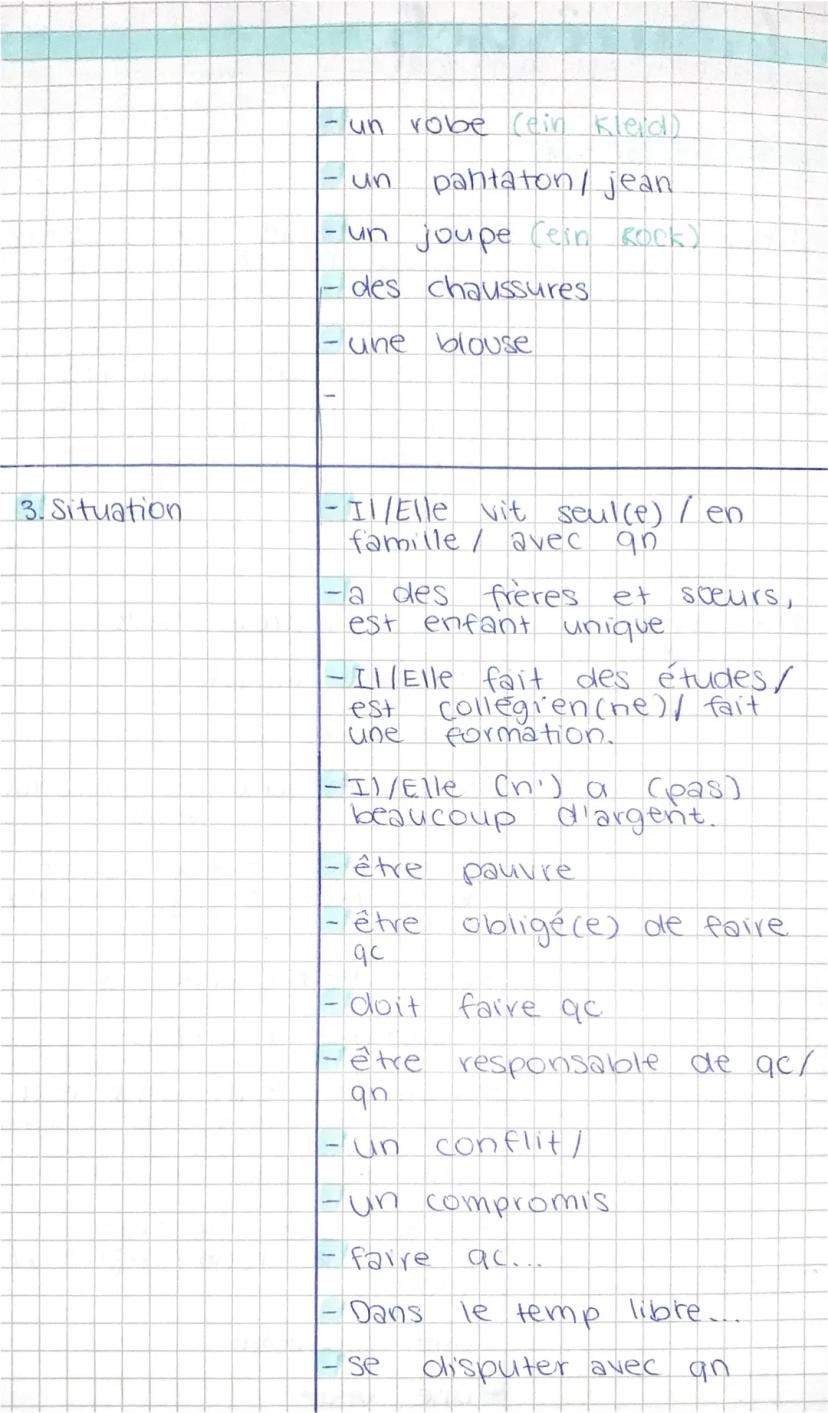 - un robe (ein Kleid)
- un pantaton / jean
- un joupe (ein Rock)
- des chaussures
- une blouse
-
3. Situation
- Il/Elle vit seul(e) / en
famille / avec qn
- a des frères et sœurs,
est enfant unique
- Il/Elle fait des études/
est collégien(ne)/ fait
une formation.
- Il/Elle (n') a (pas)
beaucoup d'argent.
- être pauvre
- être obligé(e) de faire
qc
- doit faire qc
- être responsable de qc/
qn
- un conflit/
- un compromis
- faire qc...
- Dans le temp libre...
- se disputer avec qn